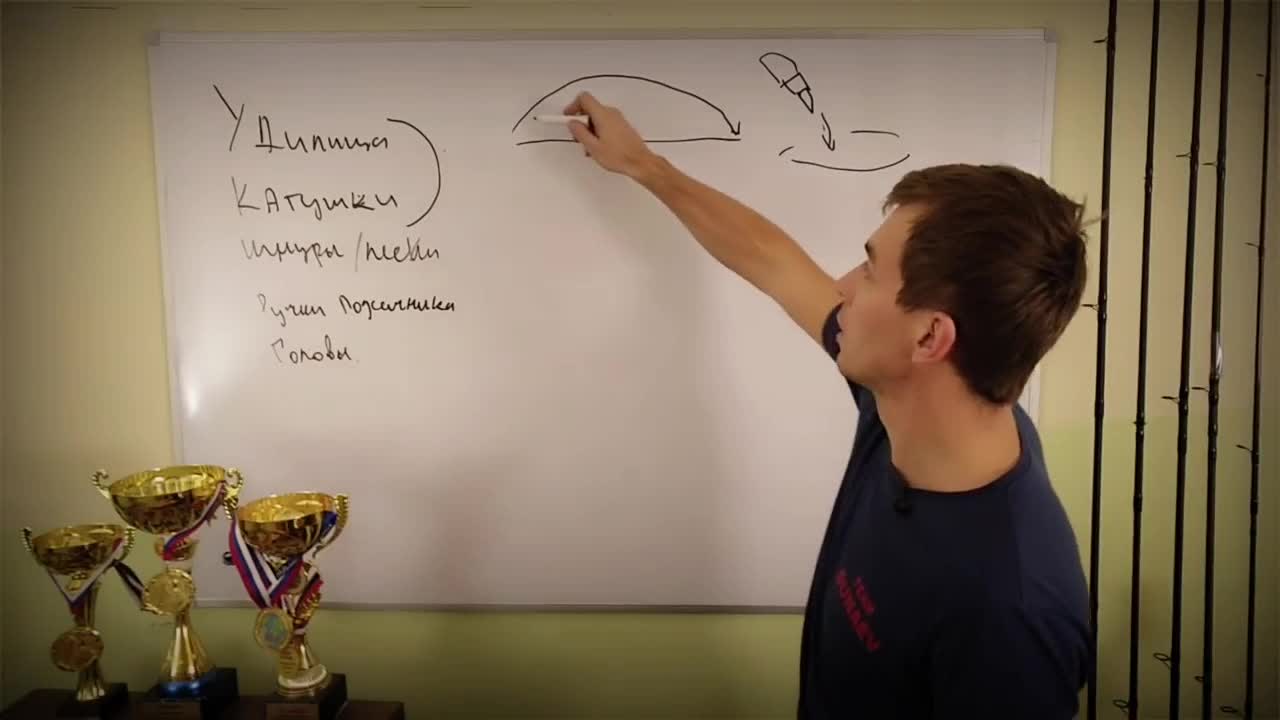 Удилища
Катушки
Шнуры/лески
Ручки Подсачника
Головы